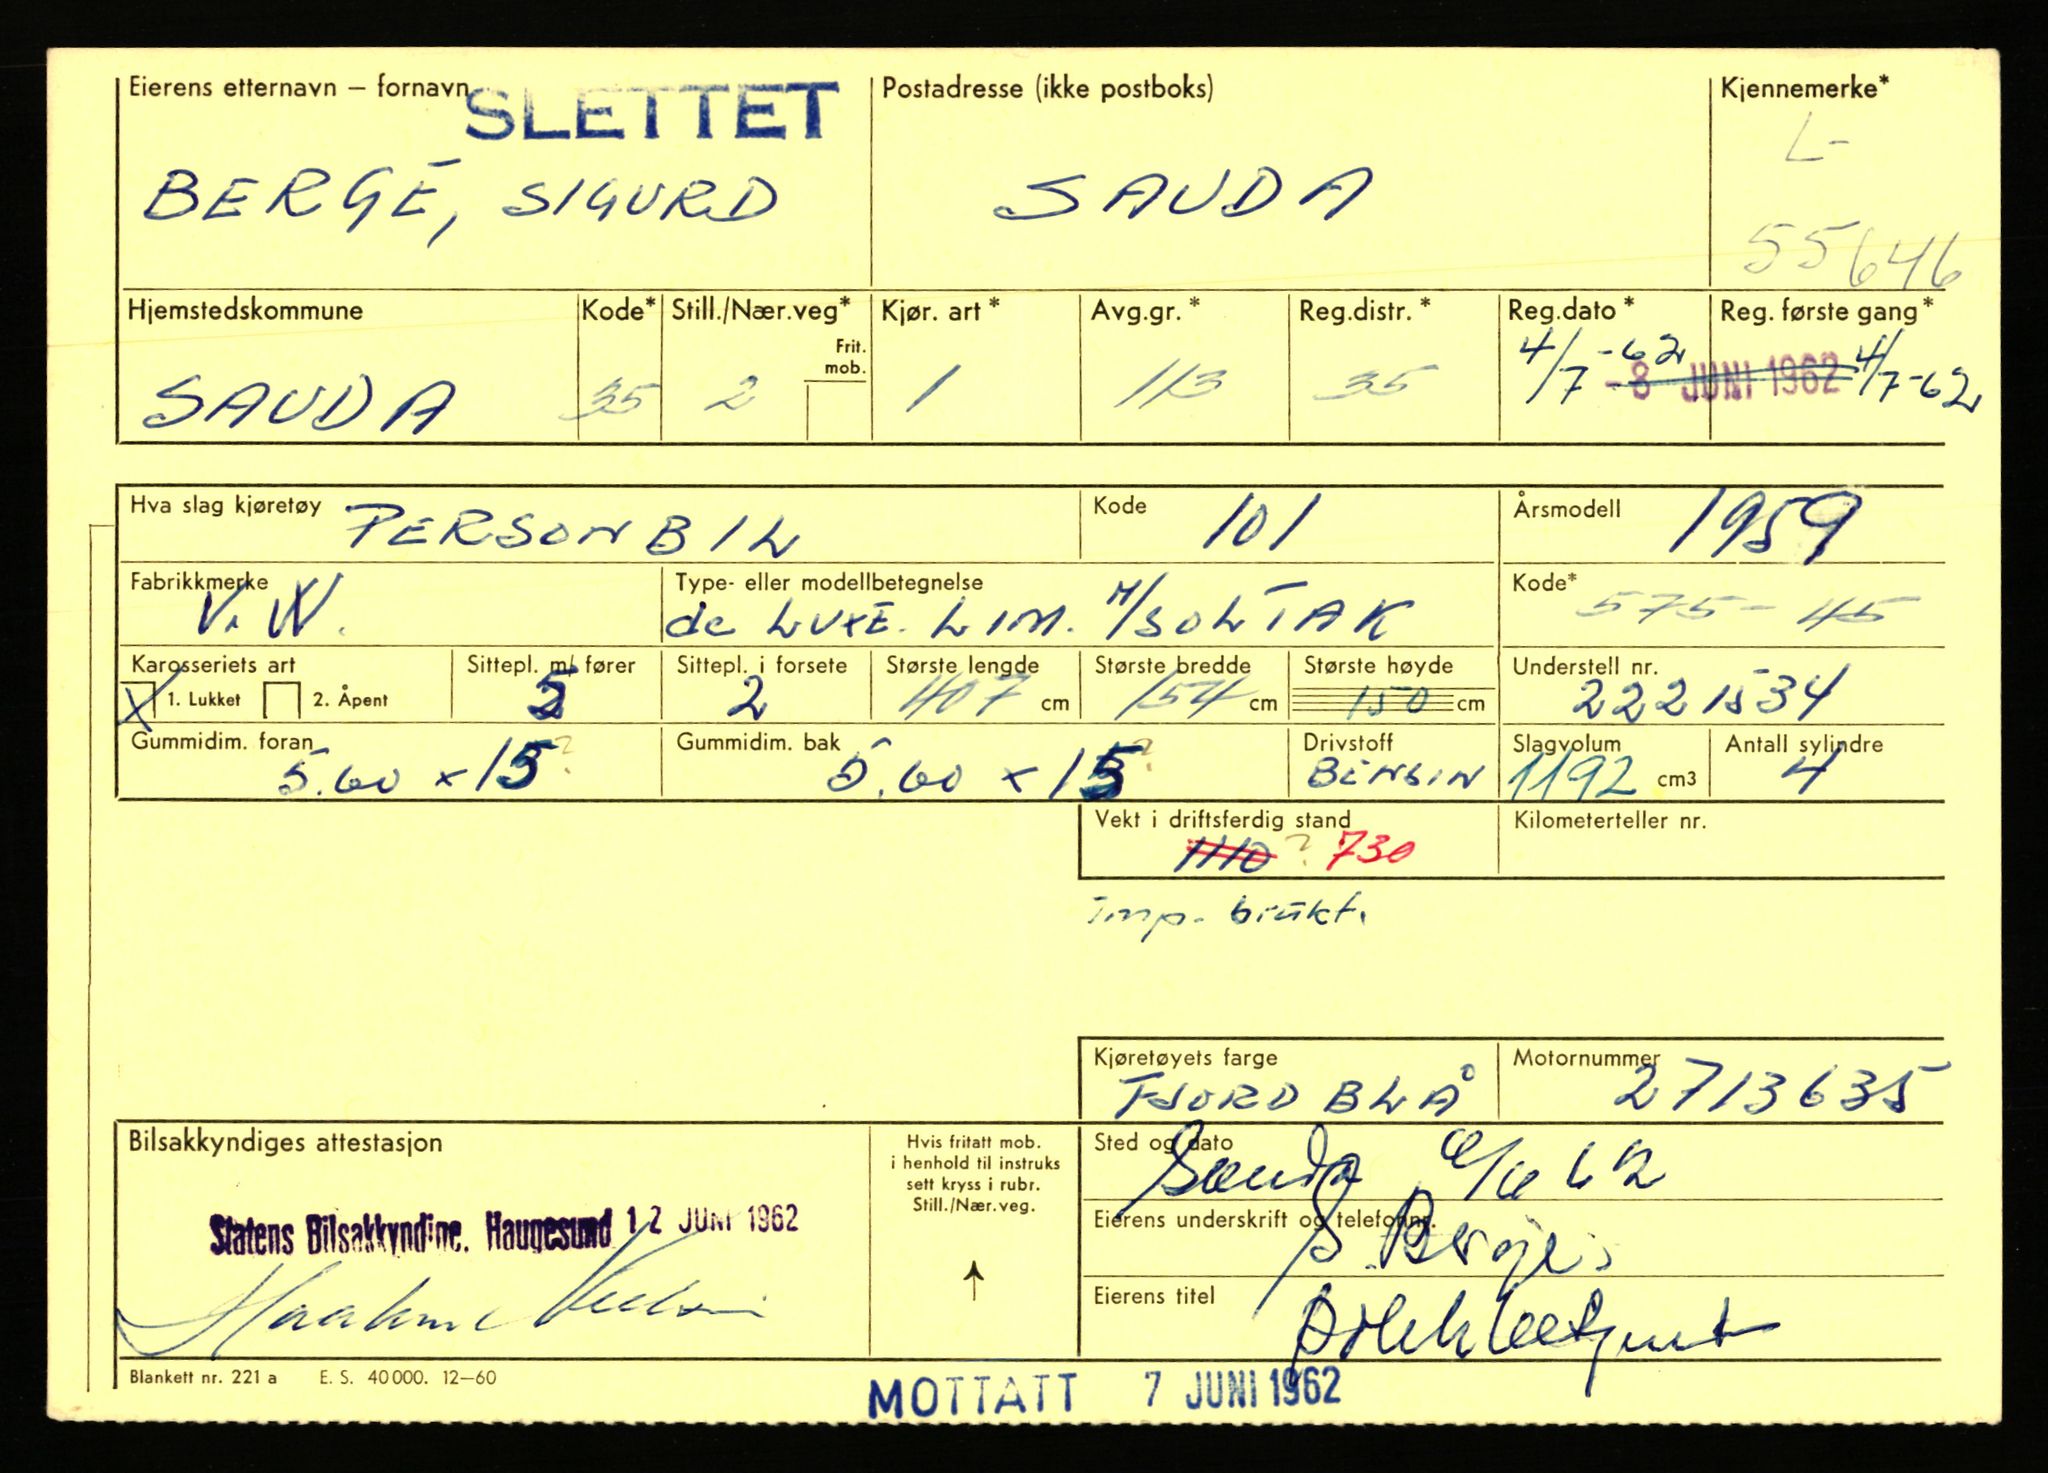 Eierens etternavn – fornavn SLETTET
Postadresse (ikke postboks)
Kjennemerke*
BERGE, SIGURD
SAUDA
L-
55646
Hjemstedskommune
Kode*
Still./Nær.veg*
Frit. mob.
Kjør. art*
Avg.gr.*
Reg.distr.*
Reg.dato*
Reg. første gang*
SAUDA
35
2
1
113
35
4/7-62
-8 JUNI 1962
4/7-62
Hva slag kjøretøy PERSONBIL
Kode 101
Årsmodell 1959
Fabrikkmerke V.W.
Type- eller modellbetegnelse
de LUXE. LIM. M/SOLTAK
Kode* 575-45
Karosseriets art
X 1. Lukket 2. Åpent
Sittepl. m/ fører
5
Sittepl. i forsete
2
Største lengde
407 cm
Største bredde
154 cm
Største høyde
150 cm
Understell nr.
2221534
Gummidim. foran
5.60 x 15?
Gummidim. bak
5.60 x 15?
Drivstoff
BENSIN
Slagvolum
1192 cm3
Antall sylindre
4
Vekt i driftsferdig stand
1110 ? 730
Kilometerteller nr.
imp. brukt.
Kjøretøyets farge
FJORD BLÅ
Motornummer
2713635
Bilsakkyndiges attestasjon
Statens Bilsakkyndige. Haugesund 12 JUNI 1962
Hvis fritatt mob.
i henhold til instruks
sett kryss i rubr.
Still./Nær.veg.
Sted og dato
Sauda
62
Eierens underskrift og telefonnr.
S. Berge
Eierens titel
Blankett nr. 221 a E. S. 40 000. 12–60
MOTTATT 7 JUNI 1962